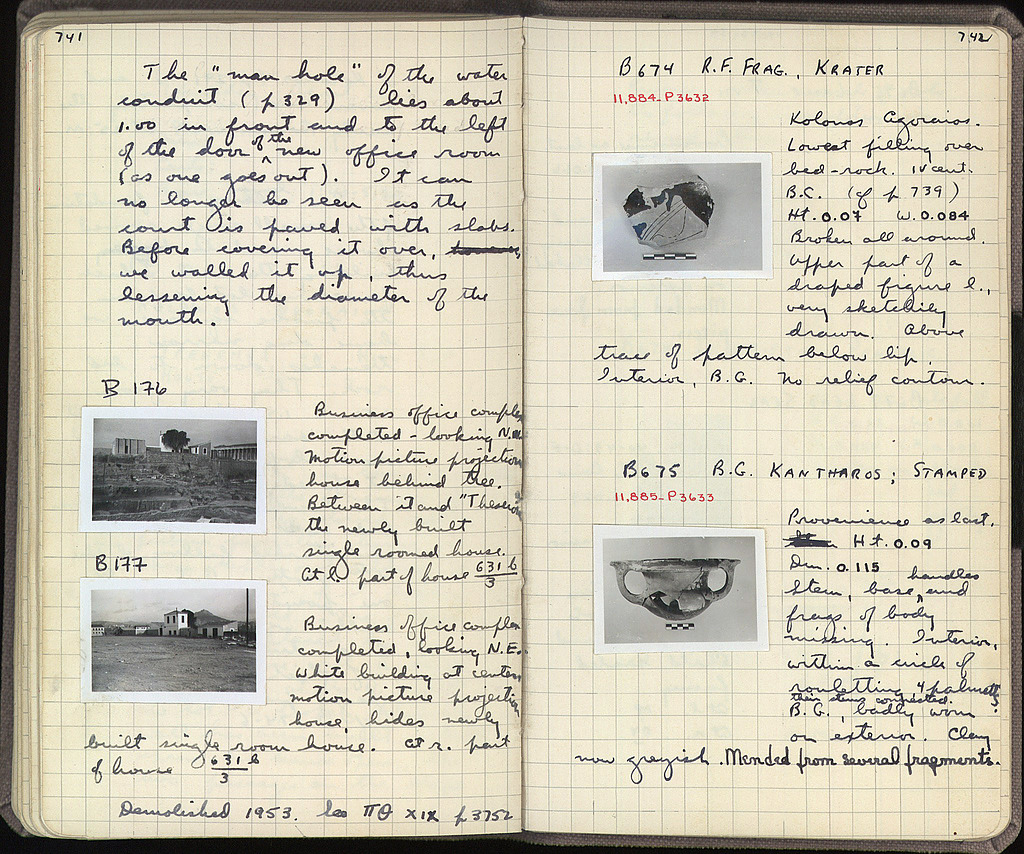 741
The "man hole" of the water
conduit (p 329) lies about
1.00 in front and to the left
of the door of the new office room
(as one goes out). It can
no longer be seen as the
court is paved with slabs.
Before covering it over,
we walled it up, thus
lessening the diameter of the
mouth.
B 176
Business office complex
completed - looking N.W.
Motion picture projection
house behind tree.
Between it and "Theseion"
the newly built
single roomed house.
At l. part of house 631 b/3
B 177
Business office complex
completed, looking N.E.
White building at center
motion picture projection
house, hides newly
built single room house. At r. part
of house 631 b/3
Demolished 1953. See ΠΘ XIX p 3752
742
B674 R.F. FRAG., KRATER
11,884-P3632
Kolonos Agoraios.
Lowest filling over
bed-rock. IV cent.
B.C. (cf p 739)
Ht. 0.07 W. 0.084
Broken all around.
Upper part of a
draped figure l.,
very sketchily
drawn. Above
trace of pattern below lip.
Interior, B.G. No relief contour.
B675 B.G. KANTHAROS; STAMPED
11,885-P3633
Provenience as last.
Ht. 0.09
Dm. 0.115
Stem, base, handles and
frags of body
missing. Interior,
within a circle of
rouletting 4 palmettes;
their stems connected.
B.G., badly worn
on exterior. Clay
now greyish. Mended from several fragments.